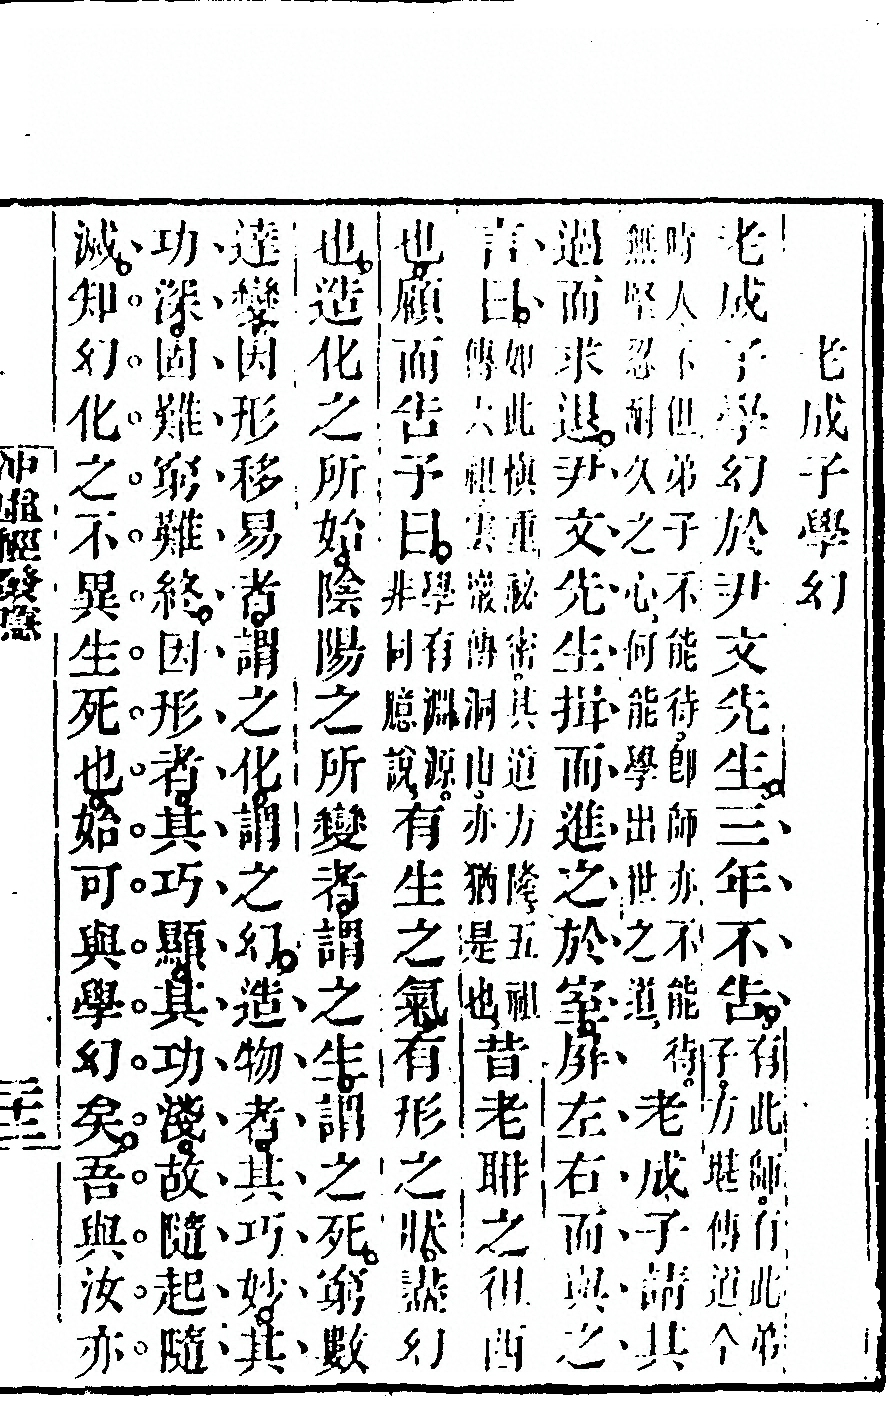 老成子學幻
老成子學幻於尹文先生。三年不告。有此師。有此弟子。方堪傳道今
時人不但弟子不能待。即師亦不能待。無堅忍耐久之心。何能學出世之道。老成子請其
過而求退。尹文先生揖而進之於室。屏左右而與之
言曰。如此慎重祕密。其道方隆。五祖傳六祖雲巖傳洞山。亦猶是也。昔老聃之徂西
也。顧而告予曰。學有淵源。非同臆說。有生之氣。有形之狀。盡幻
也。造化之所始。陰陽之所變者。謂之生。謂之死。窮數
達變。因形移易者。謂之化。謂之幻。造物者。其巧妙。其
功深。固難窮難終。因形者。其巧顯。其功淺。故隨起隨
滅。知幻化之不異生死也。始可與學幻矣。吾與汝亦
冲虛經發隱
二十三